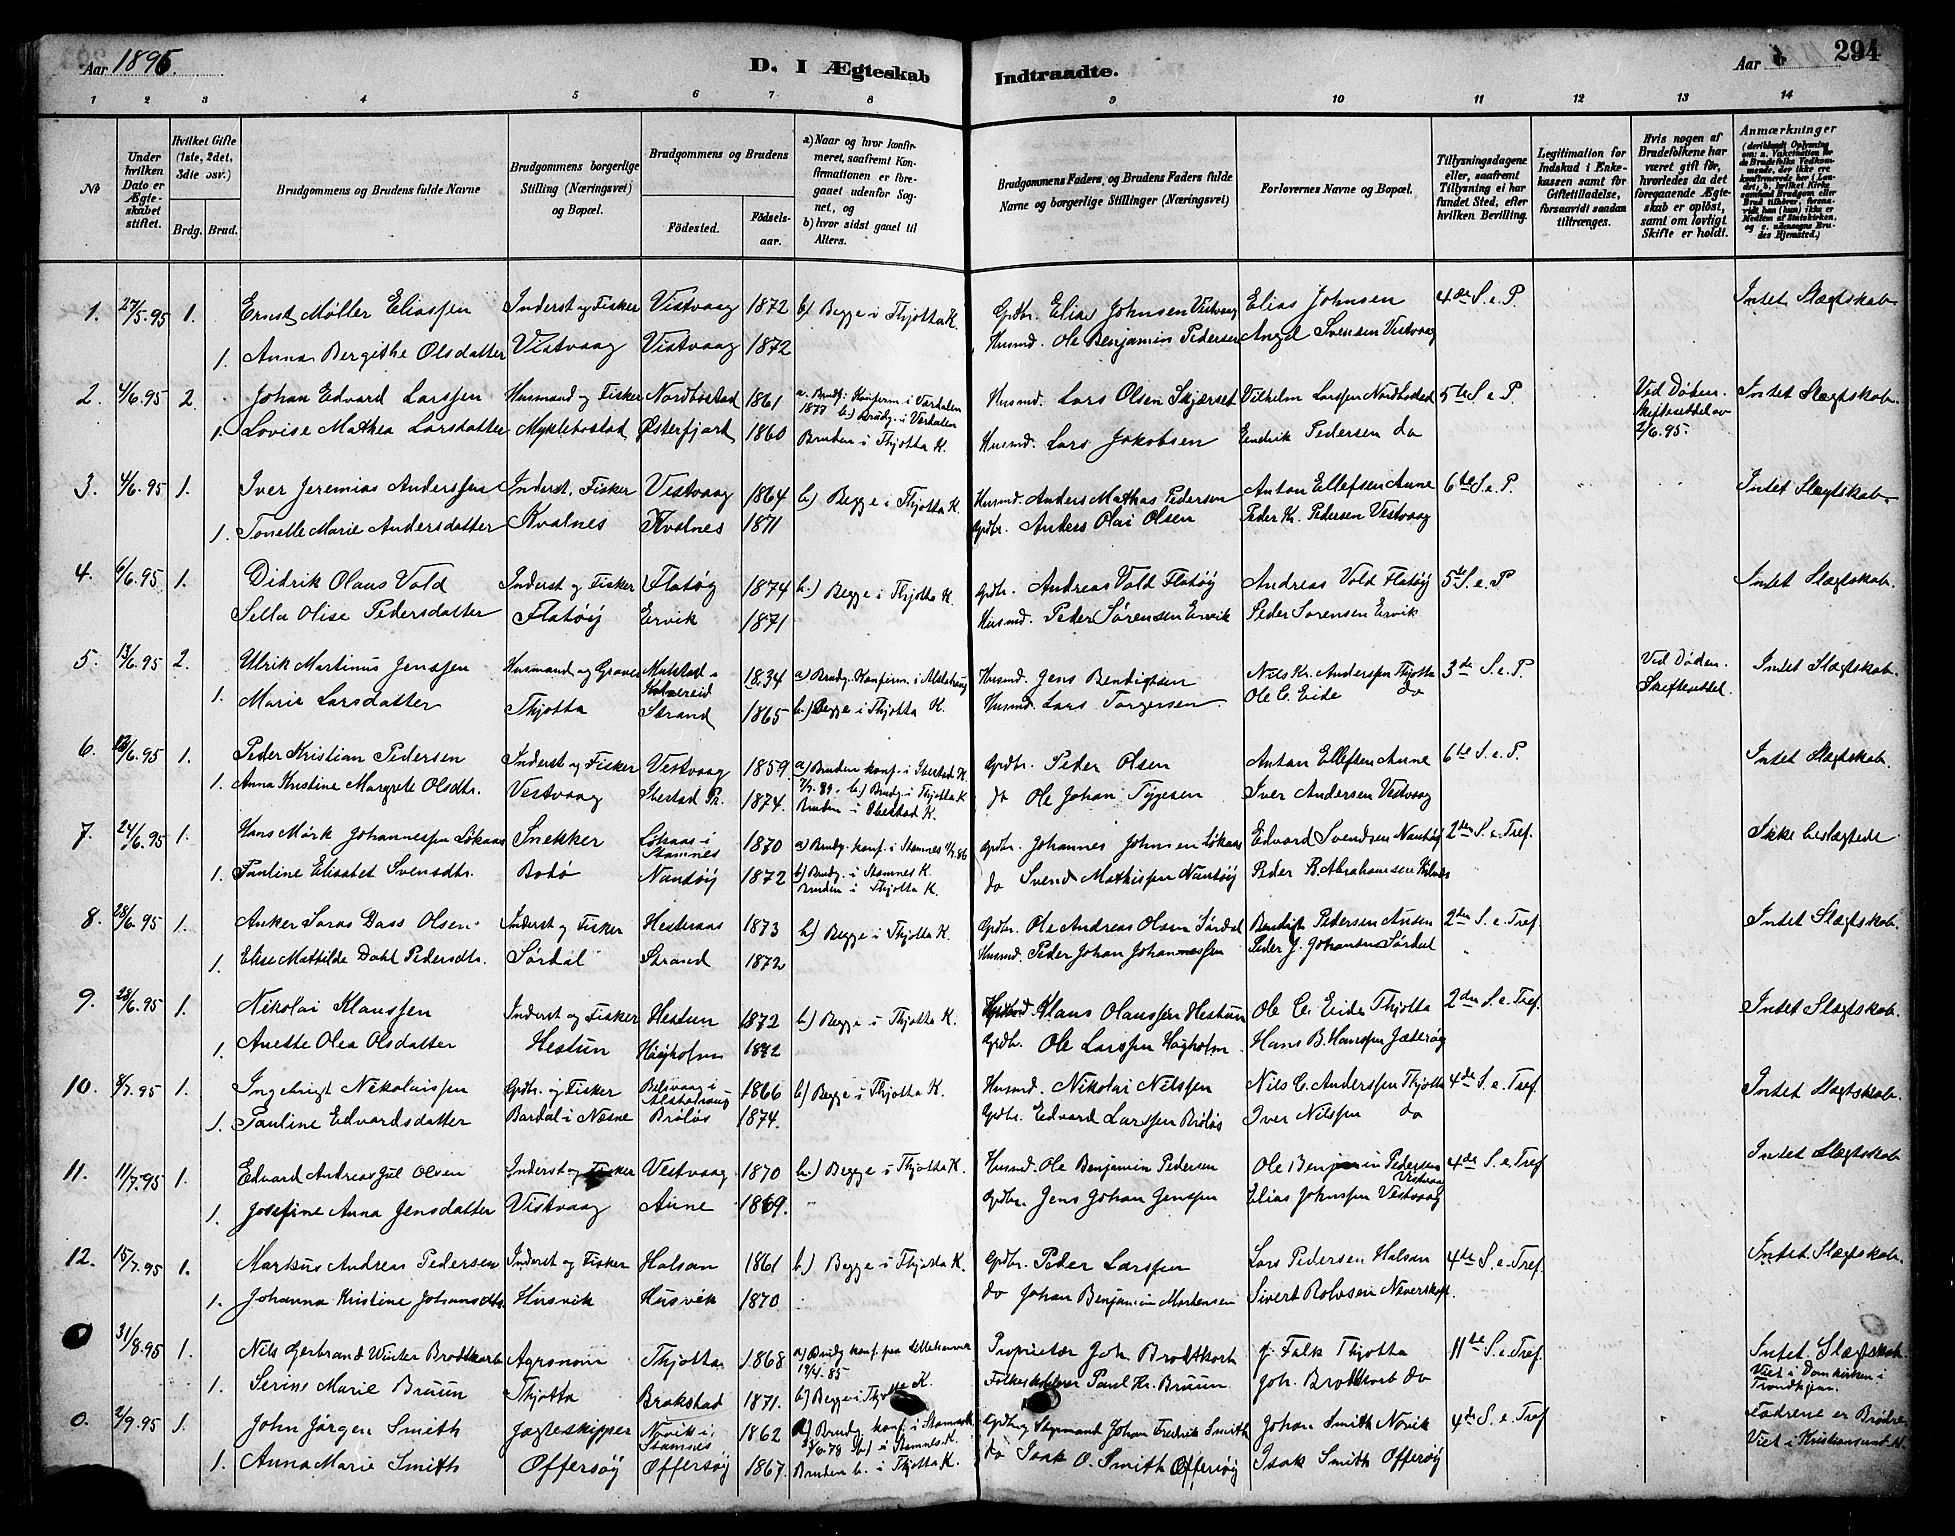 Aar 1895.
D. I Ægteskab Indtraadte.
Aar 294
1 2 3 4 5 6 7 8 9 10 11 12 13 14
No
Under hvilken Dato er Ægteskabet stiftet.
Hvilket Gifte (1ste, 2det, 3die osv.)
Brdg. Brud.
Brudgommens og Brudens fulde Navne
Brudgommens borgerlige Stilling (Næringsvei) og Bopæl.
Brudgommens og Brudens
Fødested. Fødselsaar.
a) Naar og hvor konfirmeret, saafremt Konfirmationen er foregaaet udenfor Sognet, og
b) hvor sidst gaaet til Alters.
Brudgommens Faders, og Brudens Faders fulde Navne og borgerlige Stillinger (Næringsvei)
Forlovernes Navne og Bopæl.
Tillysningsdagene eller, saafremt Tillysning ei har fundet Sted, efter hvilken Bevilling.
Legitimation for Indskud i Enkekassen samt for Giftetilladelse, forsaavidt saadan tiltrænges.
Hvis nogen af Brudefolkene har været gift før, hvorledes da det foregaaende Ægteskab er opløst, samt om lovligt Skifte er holdt.
Anmærkninger
1. 27/5.95 1. Ernst Møller Eliassen Inderst og Fisker Vistvaag 1872 b) Begge i Thjotta K. Grdbr. Elias Johnsen Vistvaag Elias Johnsen 4de S. e. P. Intet Slægtskab.
1. Anna Bergithe Olsdatter Vistvaag Vistvaag 1872 Husmd. Ole Benjamin Pedersen Angel Svensen Vestvaag
2. 4/6.95 2. Johan Edvard Larssen Husmand og Fisker Nordbostad 1861 a. Brudg. Konfirm. i Værdalen 1877 b.) Brudg. i Værdalen Husmd. Lars Olsen Skjærset Vilhelm Larssen Nordbostad 5te S. e. P. Ved Døden. Skifteseddel av 2/6.95. Intet Slægtskab.
1. Lovise Mathea Larsdatter Myklebostad Østerfjord 1860 Bruden i Thjotta K. Husmd. Lars Jakobsen Endrik Pedersen do
3. 4/6.95 1. Iver Jeremias Anderssen Inderst. Fisker Vestvaag 1864 b.) Begge i Thjotta K. Husmd. Anders Mathias Pedersen Anton Ellefsen Aune 6te S. e. P. Intet Slægtskab.
1. Tonette Marie Andersdatter Kvalnes Kvalnes 1871 Grdbr. Anders Olai Olsen Peder Kr. Pedersen Vestvaag
4. 6/6.95 1. Didrik Olaus Vold Inderst og Fisker Flatøy 1874 b.) Begge i Thjotta K. Grdbr. Andreas Vold Flatøy Andreas Vold Flatøy 5te S. e. P Intet Slægtskab.
Sella Olise Pedersdatter Flatøy Ervik 1871 Husmd. Peder Sørensen Ervik Peder Sørensen Ervik
5. 13/6.95 2. Ulrik Martinus Jenssen Husmand og Graver 1834 a) Brudg. Konfirm. i Alstahaug Husmd. Jens Bendigtsen Nils Kr. Anderssen Thjotta 3de S. e. P Ved Døden. Skifteseddel. Intet Slægtskab.
1. Marie Larsdatter Thjotta Strand 1865 b.) Begge i Thjotta K. Husmd. Lars Torgersen Ole C. Eide do
6. 13/6.95 1. Peder Kristian Pedersen Inderst og Fisker Vestvaag 1859 a) Bruden konf. i Ibestad K 7/7.89. b.) Brudg. i Thjotta K Grdbr. Peder Olsen Anton Ellefsen Aune 6te S. e. P. Intet Slægtskab.
1. Anna Kristine Margrete Olsdtr. Vestvaag Ibestad Pr. 1874. Bruden i Ibestad K. do Ole Johan Tygesen Iver Andersen Vestvaag
7. 24/6.95 1. Hans Mørk Johannessen Løkaas Snekker Løkaas i Stamnes 1870 a) Brudg. konf. i Stamnes Grdbr. Johannes Johnsen Løkaas Edvard Svendsen Nautøy 2den S. e. Tref. Ikke beslægtede
1. Pauline Elisabet Svensdtr. Bodø Nautøy 1872 b) Brudg. i Stamnes K. Bruden i Thjotta K. do Svend Mathissen Nautøy Peder B. Abrahamsen Kilnes
8. 28/6.95 1. Anker Soras Dass Olsen Inderst og Fisker Hesteraas 1873 b) Begge i Thjotta K. Grdbr. Ole Andreas Olsen Sørdal Bendigt Pedersen Ausen 2den S. e. Tref. Intet Slægtskab.
1. Elise Mathilde Dahl Pedersdtr. Sørdal Strand 1872 Husmd. Peder Johan Johannessen Peder J. Johansen Sørdal
9. 28/6.95 1. Nikolai Klaussen Inderst og Fisker Hestun 1872 b.) Begge i Thjotta K. Klaus Olaussen Hestun Ole C. Eide Thjotta 2den S. e. Tref. Intet Slægtskab.
1. Anette Olea Olsdatter Hestun Høyholm 1872 Grdbr. Ole Larssen Høyholm Hans B. Hanssen Jæterøy
10. 8/7.95 1. Ingebrigt Nikolaissen Grdbr. og Fisker Belsvaag i Alstahaug 1866 b) Begge i Thjotta K. Husmd. Nikolai Nilssen Nils C. Anderssen Thjotta 4de S. e. Tref. Intet Slægtskab.
1. Pauline Edvardsdatter Bardal i Nesne Brøløs 1874. Grdbr. Edvard Larssen Brøløs Iver Nilssen do
11. 11/7.95 1. Edvard Andreas Jul Olsen Inderst og Fisker Vestvaag 1870 b.) Begge i Thjotta K. Husmd. Ole Benjamin Pedersen Ole Benjamin Pedersen Vistvaag 4de S. e. Tref Intet Slægtskab
1. Josefine Anna Jensdatter Vistvaag Aune 1869. Grdbr. Jens Johan Jenssen Elias Johnssen Vestvaag
12. 15/7.95 1. Markus Andreas Pedersen Inderst og Fisker Halsan 1861 b.) Begge i Thjotta K. Grdbr. Peder Larssen Lars Pedersen Halsan 4de S. e. Tref. Intet Slægtskab.
1. Johanna Kristine Johansdtr. Husvik Husvik 1870 do Johan Benjamin Mortensen Sivert Rolvsen Neverskaft
31/8.95 1. Nils Gerbrand Winter Brodtkorb Agronom Thjotta 1868 a) Brudg. konf. paa Lillehammer 19/4.85 Proprietær Joh. Brodtkorb J. Falk Thjotta 11te S. e. Tref. Intet Slægtskab. Viet i Domkirken i Trondhjem.
1. Serine Marie Bruun Thjotta Brakstad 1871. b) Begge i Thjotta K. Folkeskolelærer Paul Hr. Bruun Joh. Brodtkorb do
0. 2/9.95 1. John Jørgen Smith Jægteskipper Novik i Stamnes 1862 a) Brudg. konf. i Stamnes K b) i Stamnes K. Grdbr. og Styrmand Johan Fredrik Smith Johan Smith Novik 4de S. e. Tref. Fædrene er Brødre. Viet i Kristiansund K.
1. Anna Marie Smith Offersøy Offersøy 1867. Bruden b. i Thjotta K. do Isak O. Smith Offersøy Isak Smith Offersøy